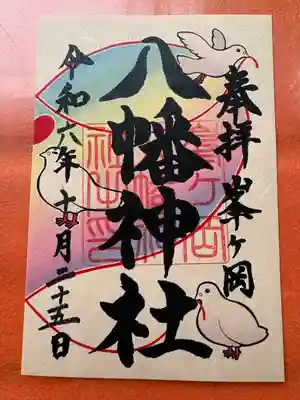 奉拝 峯ヶ岡
八幡神社
令和六年十一月二十五日